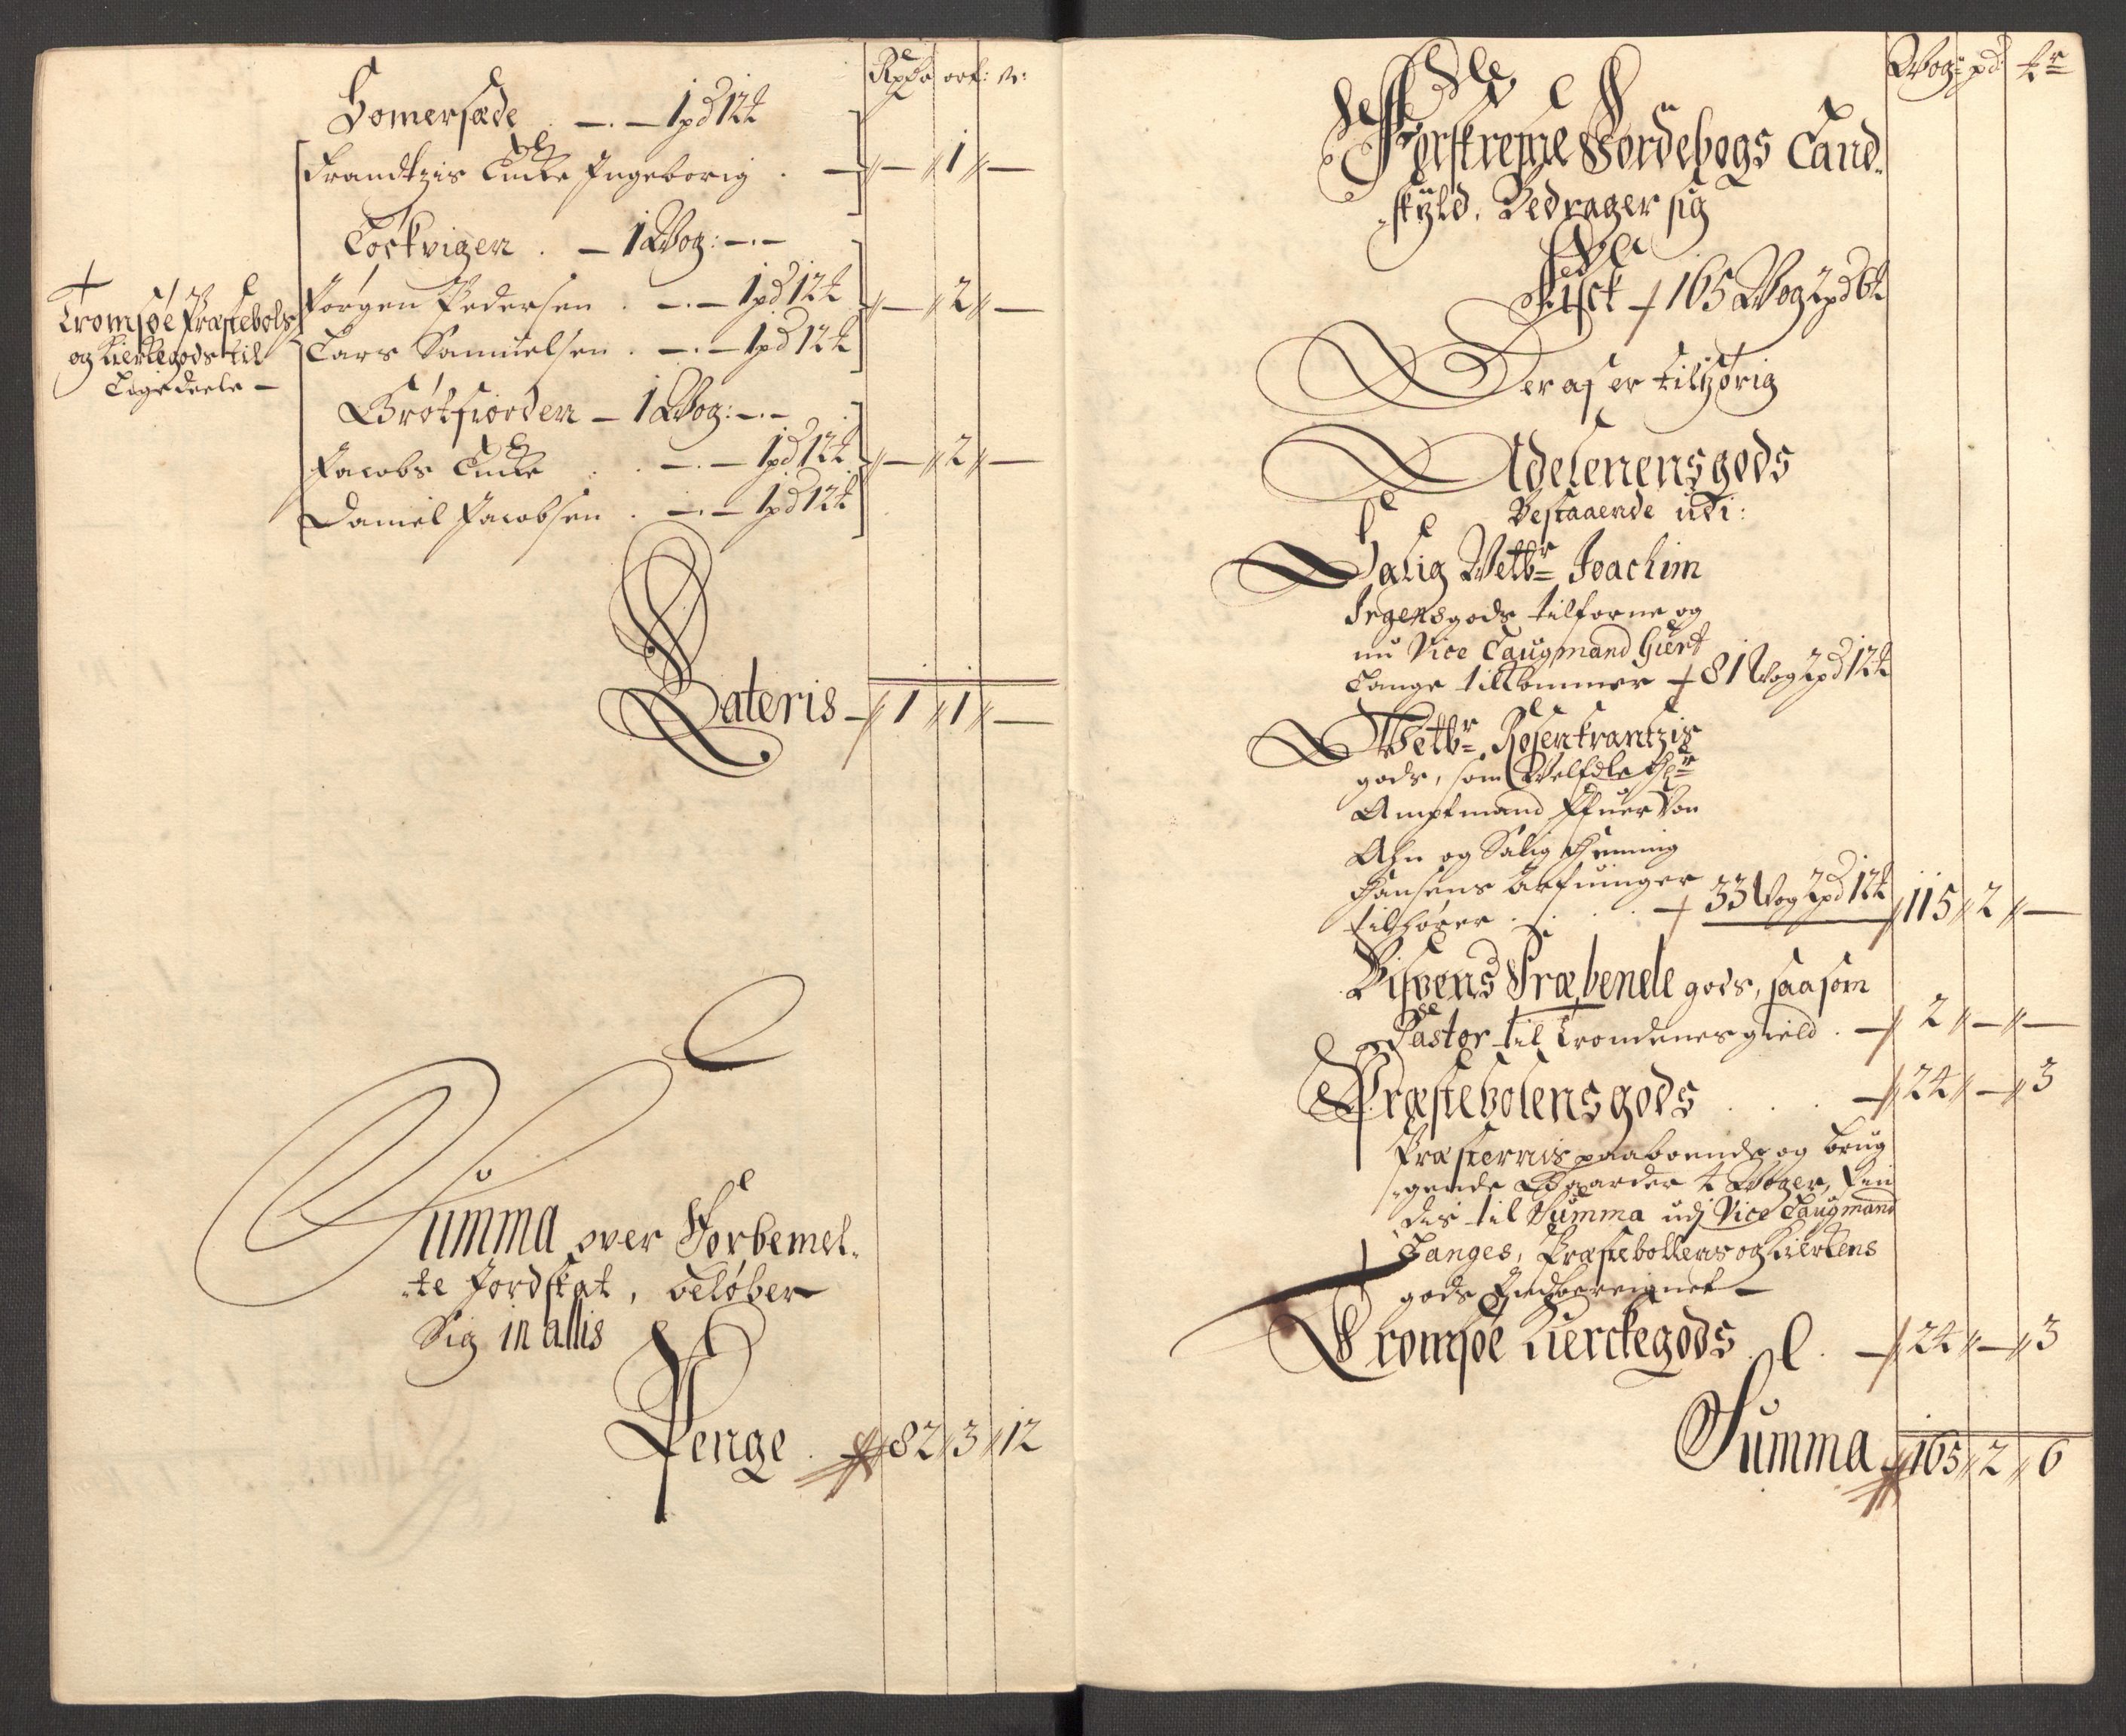 Rxdr ort: s:
Somersæde . —.— 1 pd 12 ℔
Frandtzis Encke Ingeborig . — — 1 —
Lochvigen . — 1 Wog: —.—
Jørgen Pedersen . —.— 1 pd 12 ℔ — 2 —
Lars Samuelsen . —.— 1 pd 12 ℔
Tromsøe Præstebols
og Kierkegods til
Lige deele —
Grøtfiorden — 1 Wog: —.—
Jacobs Encke . . —.— 1 pd 12 ℔ — 2 —
Daniel Jacobsen . —.— 1 pd 12 ℔
Lateris — 1 1 —
Summa over Forbemel-
te Jordskat, beløber
Sig in allis
Penge . 82 3 12
Wog: pd ℔r
Forskrefne Jordebogs Land-
skyld, Bedrager sig
Fisck — 165 Wog 2 pd 6 ℔
Der af er tilhørig
Adelenens gods
Bestaaende udi:
Salig Velbr Joachim
Irgens gods tilforne og
nu Vice Laugmand Giert
Lange tilkommer — 81 Wog 2 pd 12 ℔
Velbr Rosenkrantzis
gods, som Velædle Hr
Amptmand Ifuer Von
Ahn og Salig Henning
Hansens Arfuinger
tilhører . . . — 33 Wog 2 pd 12 ℔ 115 2 —
Bispens Præbende gods, saasom
Pastor til Trondenes gield . — 2 — —
Præstebolens gods . . . — 24 — 3
Præsternis paaboende og brug
-gende Gaarder 4 Woger, fin
des til Summa udj Vice Laugmand
Langes, Præstebollens og Kierkens
gods Indbereignet —
Tromsøe Kierckegods . — 24 — 3
Summa 165 2 6